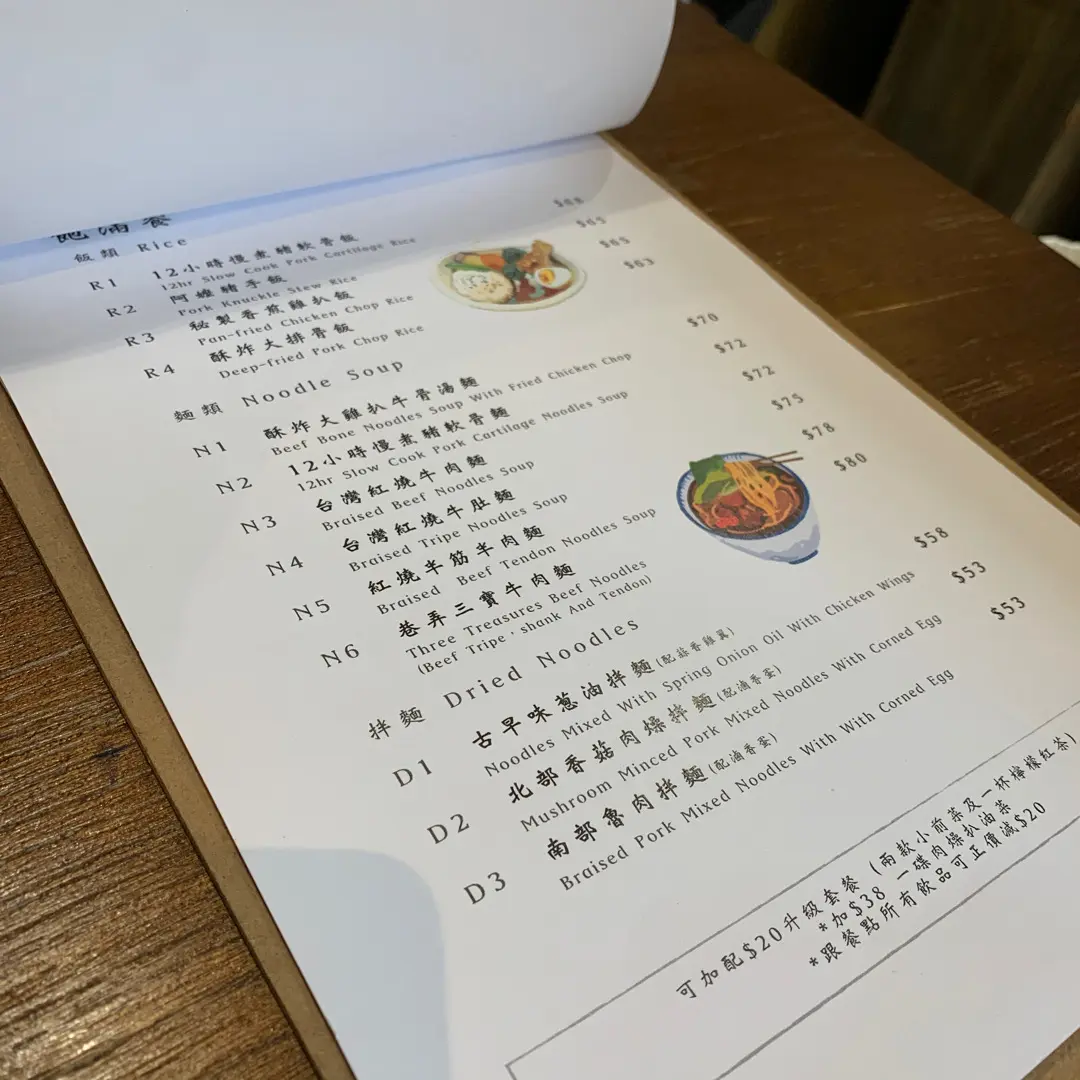 飽滿餐
飯類 Rice
R1 12小時慢煮豬軟骨飯 $68
12hr Slow Cook Pork Cartilage Rice
R2 阿嬤豬手飯 $65
Pork Knuckle Stew Rice
R3 秘製香煎雞扒飯 $65
Pan-fried Chicken Chop Rice
R4 酥炸大排骨飯 $63
Deep-fried Pork Chop Rice
麵類 Noodle Soup
N1 酥炸大雞扒牛骨湯麵 $70
Beef Bone Noodles Soup With Fried Chicken Chop
N2 12小時慢煮豬軟骨麵 $72
12hr Slow Cook Pork Cartilage Noodles Soup
N3 台灣紅燒牛肉麵 $72
Braised Beef Noodles Soup
N4 台灣紅燒牛肚麵 $75
Braised Tripe Noodles Soup
N5 紅燒半筋半肉麵 $78
Braised Beef Tendon Noodles Soup
N6 巷弄三寶牛肉麵 $80
Three Treasures Beef Noodles
(Beef Tripe，shank And Tendon)
拌麵 Dried Noodles
D1 古早味蔥油拌麵(配蒜香雞翼) $58
Noodles Mixed With Spring Onion Oil With Chicken Wings
D2 北部香菇肉燥拌麵(配滷香蛋) $53
Mushroom Minced Pork Mixed Noodles With Corned Egg
D3 南部魯肉拌麵(配滷香蛋) $53
Braised Pork Mixed Noodles With With Corned Egg
可加配$20升級套餐 (兩款小前菜及一杯檸檬紅茶)
*加$38 一碟肉燥扒油菜
*跟餐點所有飲品可正價減$20